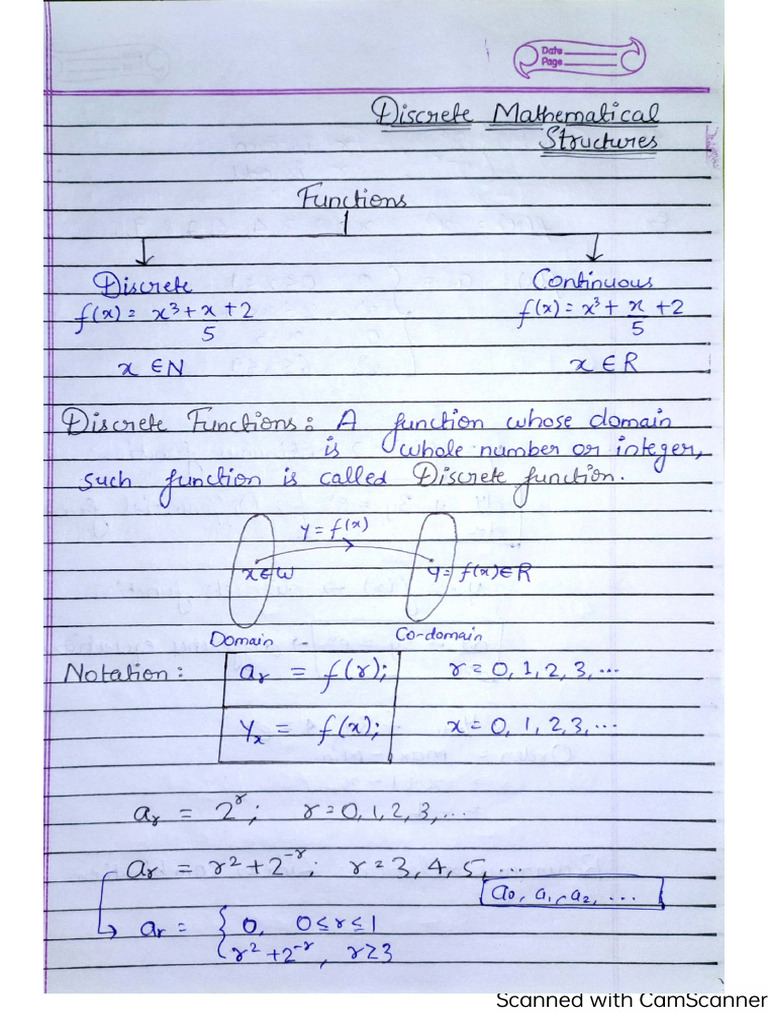 Date
Page
Discrete Mathematical
Structures
Functions
Discrete Continuous
f(x) = x³ + x + 2 / 5 f(x) = x³ + x/5 + 2
x ∈ N x ∈ R
Discrete Functions: A function whose domain
is whole number or integer,
such function is called Discrete function.
y = f(x)
x ∈ W y = f(x) ∈ R
Domain Co-domain
Notation: aᵣ = f(r); r = 0, 1, 2, 3, ...
Yₓ = f(x); x = 0, 1, 2, 3, ...
aᵣ = 2ʳ; r = 0, 1, 2, 3, ...
aᵣ = r² + 2⁻ʳ; r = 3, 4, 5, ...
a₀, a₁, a₂, ...
aᵣ = { 0, 0 ≤ r ≤ 1
r² + 2⁻ʳ, r ≥ 3
Scanned with CamScanner